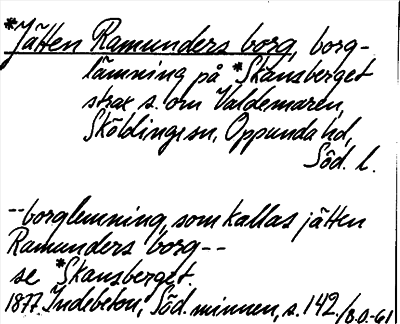 *Jätten Ramunders borg, borg-
lämning på *Skansberget
strax s. om Valdemaren,
Sköldinge sn, Oppunda hd,
Söd. l.
--borglemning, som kallas jätten
Ramunders borg--
se *Skansberget.
1877. Indebetou, Söd. minnen, s. 142. /B.O.-61